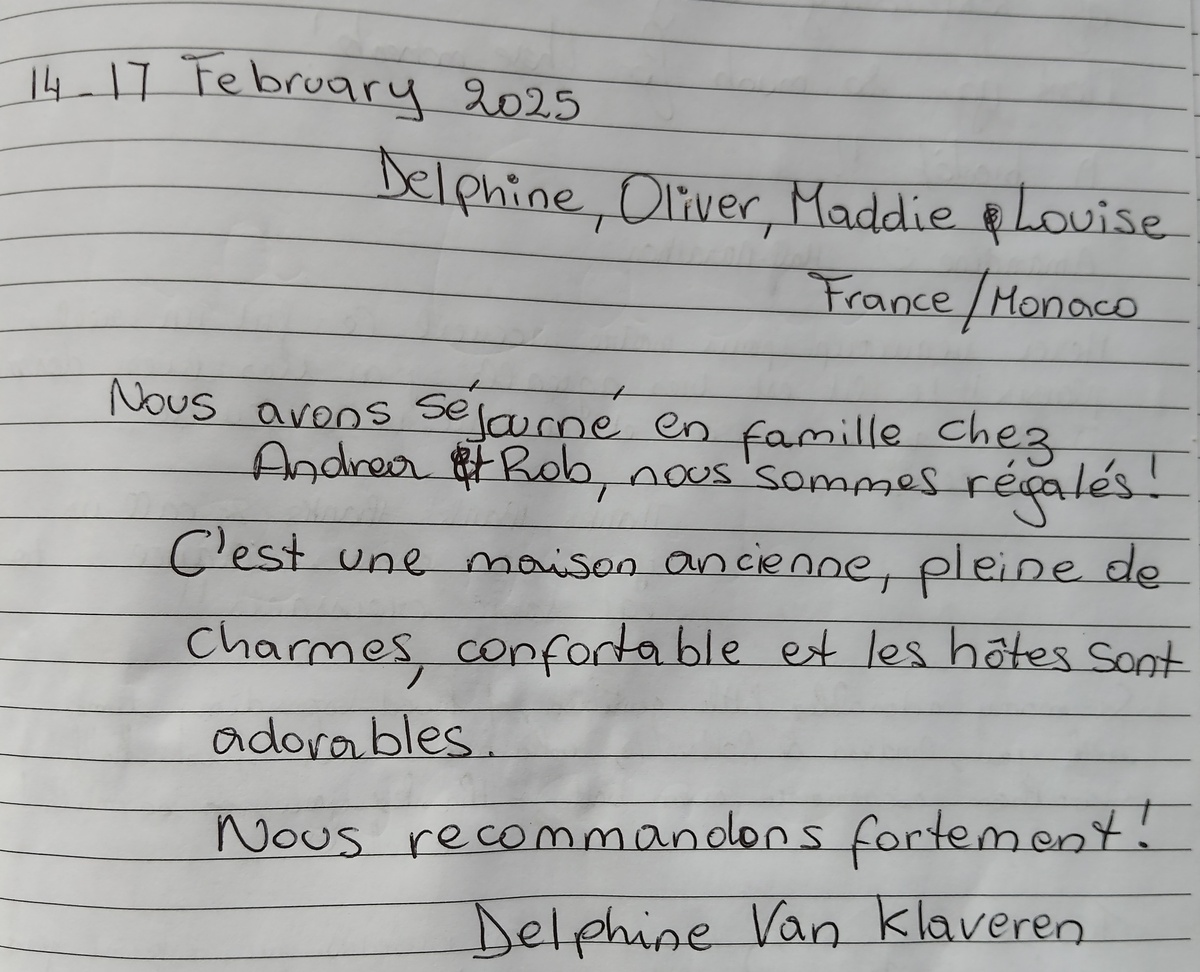 14-17 February 2025
Delphine, Oliver, Maddie & Louise
France/Monaco
Nous avons séjourné en famille chez
Andrea et Rob, nous sommes régalés!
C'est une maison ancienne, pleine de
charmes, confortable et les hôtes sont
adorables.
Nous recommandons fortement!
Delphine Van Klaveren